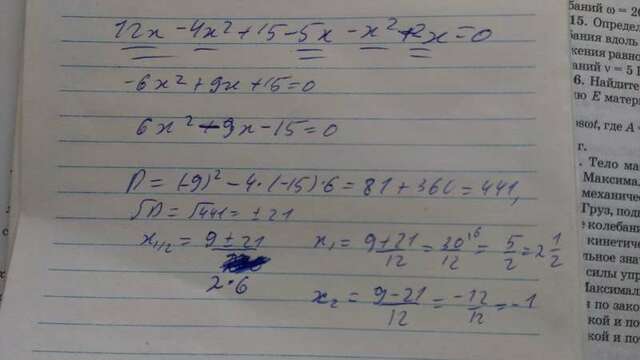 12x - 4x² + 15 - 5x - x² + 2x = 0
-6x² + 9x + 15 = 0
6x² - 9x - 15 = 0
D = (-9)² - 4·(-15)·6 = 81 + 360 = 441,
√D = √441 = ± 21
x₁/₂ = 9 ± 21 / 2·6
x₁ = 9 + 21 / 12 = 30 / 12 = 5 / 2 = 2 1/2
x₂ = 9 - 21 / 12 = -12 / 12 = -1
баний ω = 20
15. Определи
бания вдоль
жения равно
аний ν = 5 Г
6. Найдите
ию E матери
osωt, где A =
г.
Тело ма
Максимал
механическ
Груз, под
е колебани
кинетичес
льное знач
силы упр
Максимал
по закон
кой и по
кой и по